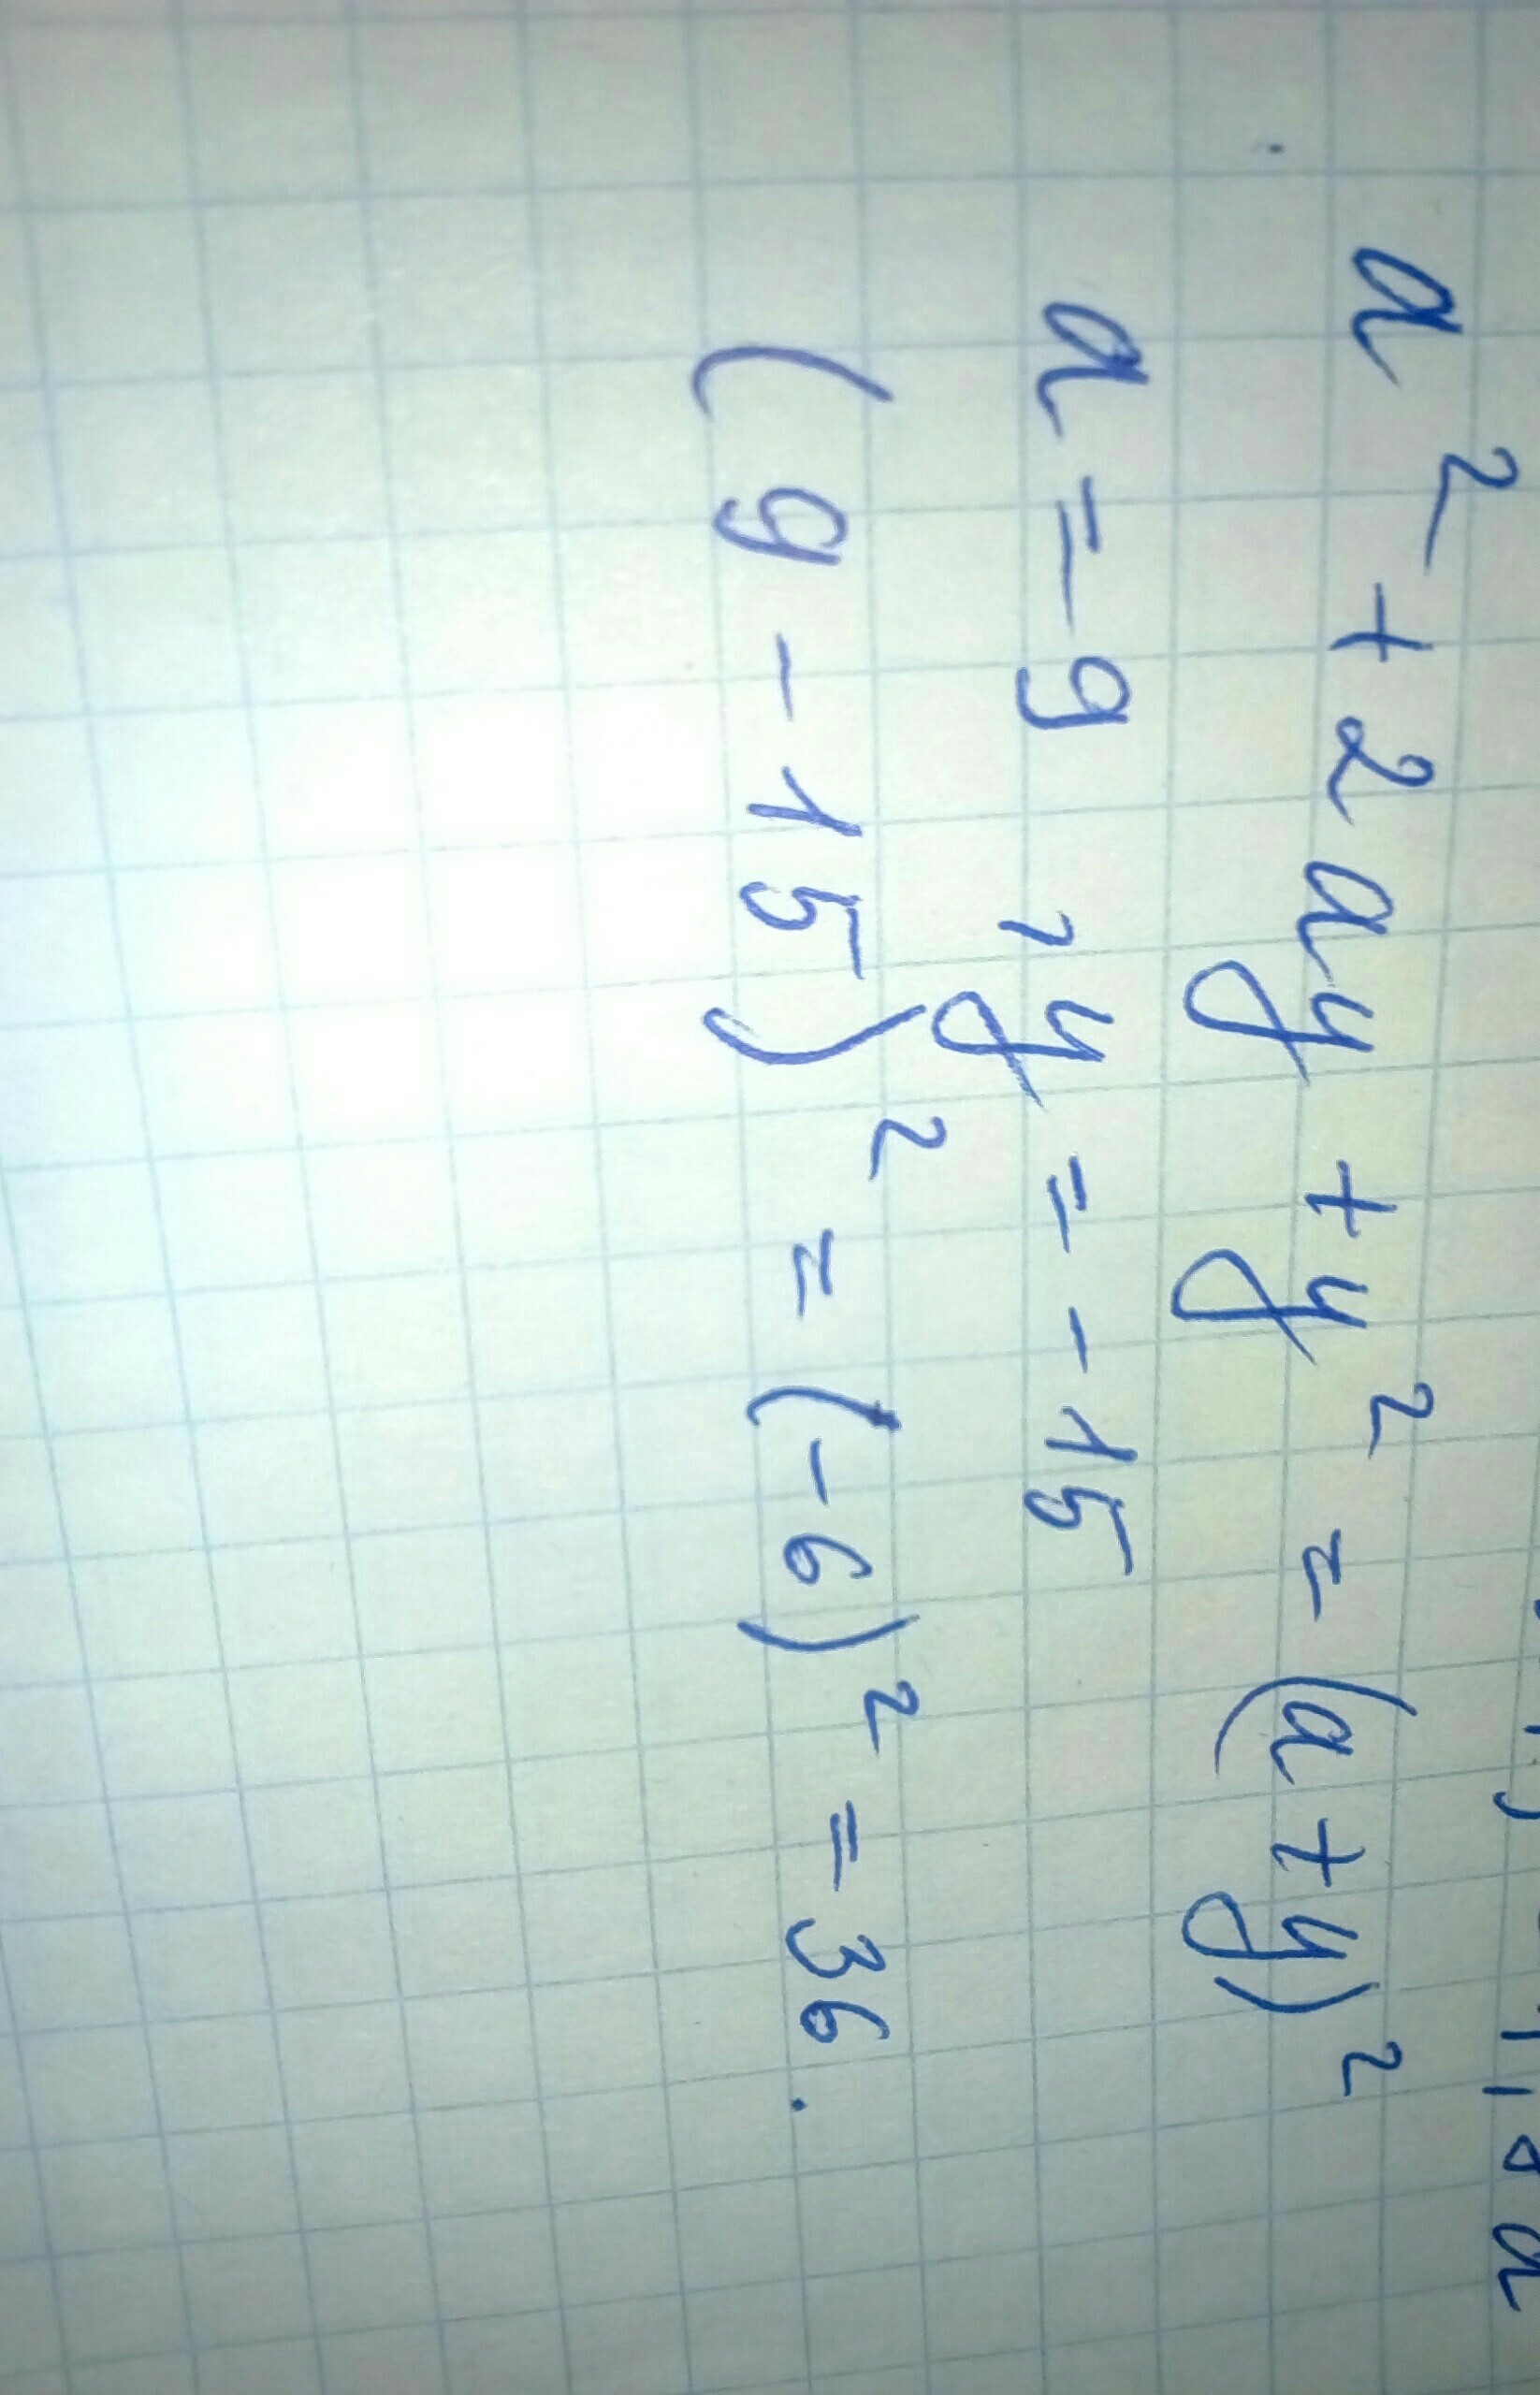 a² + 2ay + y² = (a + y)²
a = 9, y = -15
(9 - 15)² = (-6)² = 36.